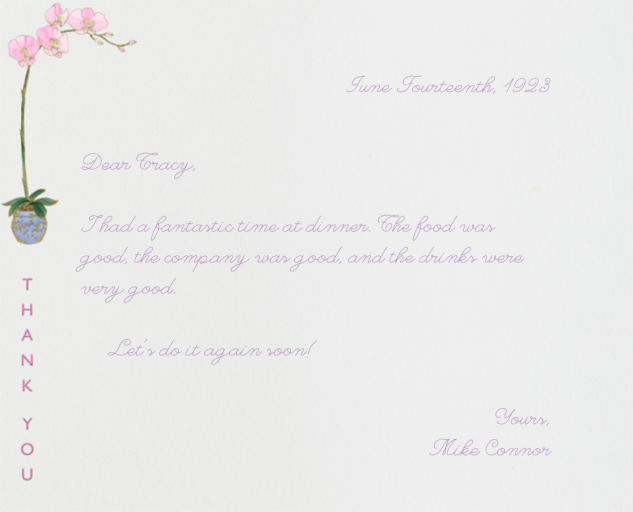 June Fourteenth, 1923
Dear Tracy,
I had a fantastic time at dinner. The food was
good, the company was good, and the drinks were
very good.
Let's do it again soon!
Yours,
Mike Connor
THANK YOU